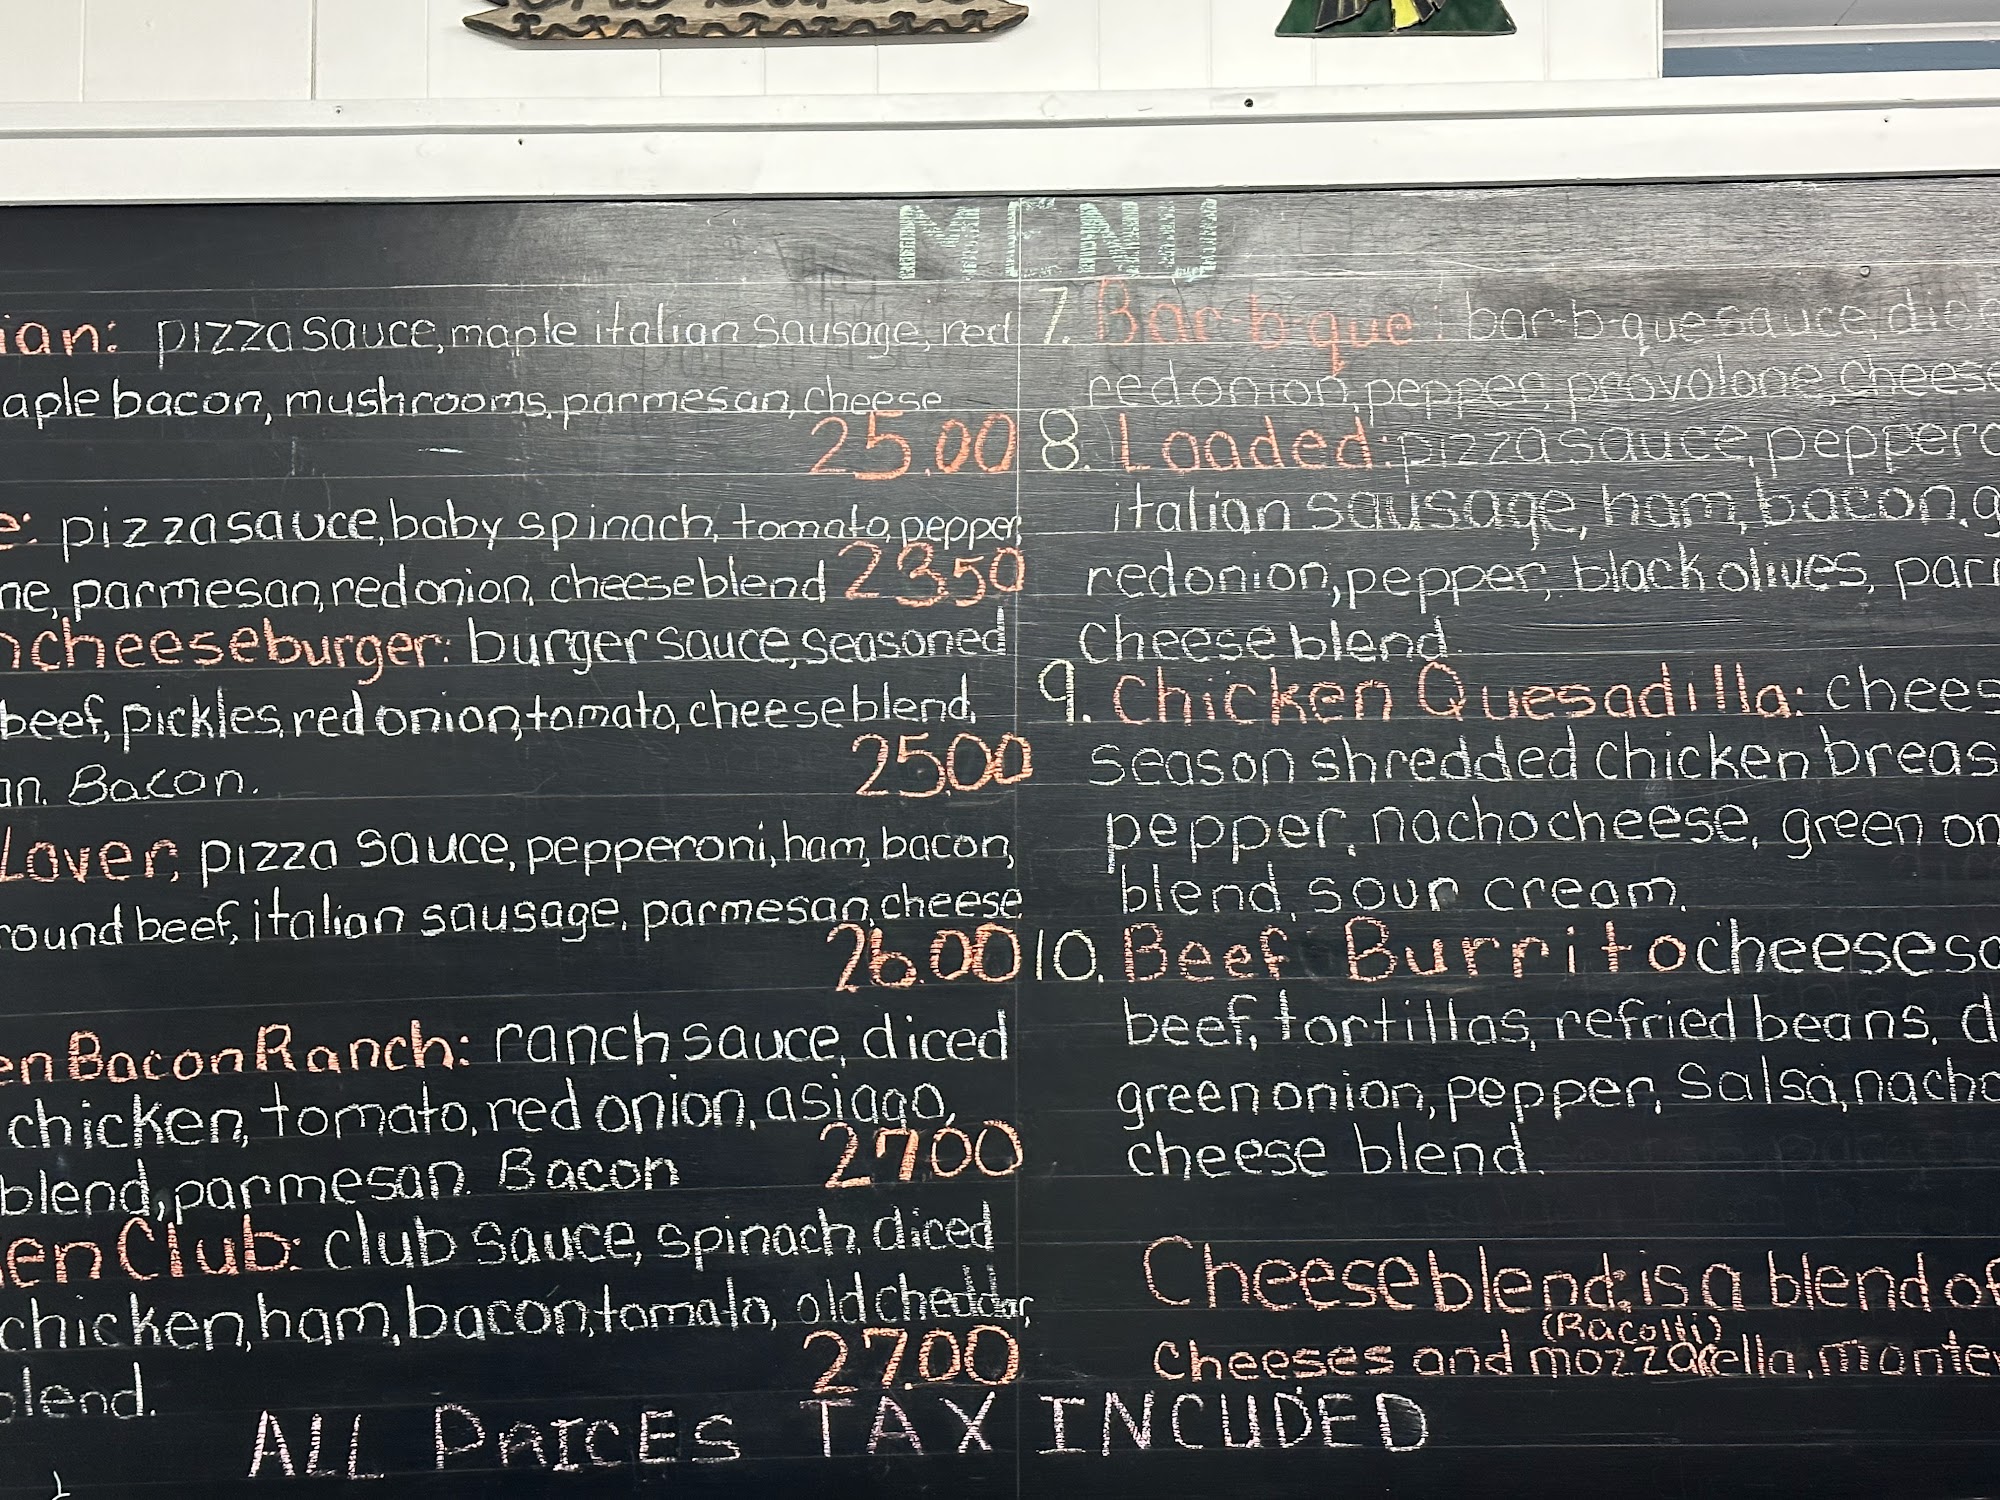 MENU
ian: pizza sauce, maple italian sausage, red
aple bacon, mushrooms, parmesan, cheese
25.00
e: pizza sauce, baby spinach, tomato, pepper,
ne, parmesan, red onion, cheese blend 23.50
ncheeseburger: burger sauce, seasoned
beef, pickles, red onion, tomato, cheese blend,
an. Bacon. 25.00
Lover, pizza sauce, pepperoni, ham, bacon,
round beef, italian sausage, parmesan, cheese
26.00
en Bacon Ranch: ranch sauce, diced
chicken, tomato, red onion, asiago,
blend, parmesan. Bacon 27.00
en Club: club sauce, spinach, diced
chicken, ham, bacon, tomato, old cheddar,
27.00
blend.
7. Bar-b-que: bar-b-que sauce, dice
red onion, pepper, provolone, cheese
8. Loaded: pizza sauce, peppero
italian sausage, ham, bacon, g
red onion, pepper, black olives, parm
cheese blend.
9. Chicken Quesadilla: chees
season shredded chicken breas
pepper, nacho cheese, green on
blend, sour cream.
10. Beef Burrito cheese sa
beef, tortillas, refried beans, d
green onion, pepper, salsa, nacho
cheese blend.
Cheese blend: is a blend of
(Racolli)
cheeses and mozzarella, monte
ALL PRICES TAX INCUDED